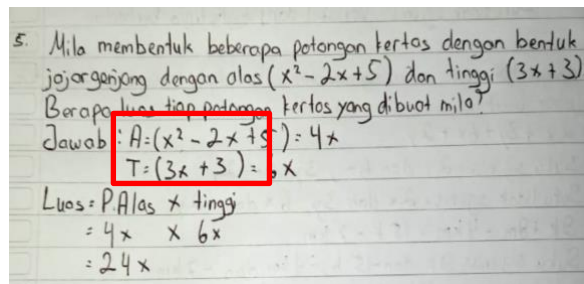 5. Mila membentuk beberapa potongan kertas dengan bentuk
jajargenjang dengan alas (x² - 2x + 5) dan tinggi (3x + 3)
Berapa luas tiap potongan kertas yang dibuat mila?
Jawab : A = (x² - 2x + 5) = 4x
T = (3x + 3) = 6x
Luas = P.Alas x tinggi
= 4x x 6x
= 24x